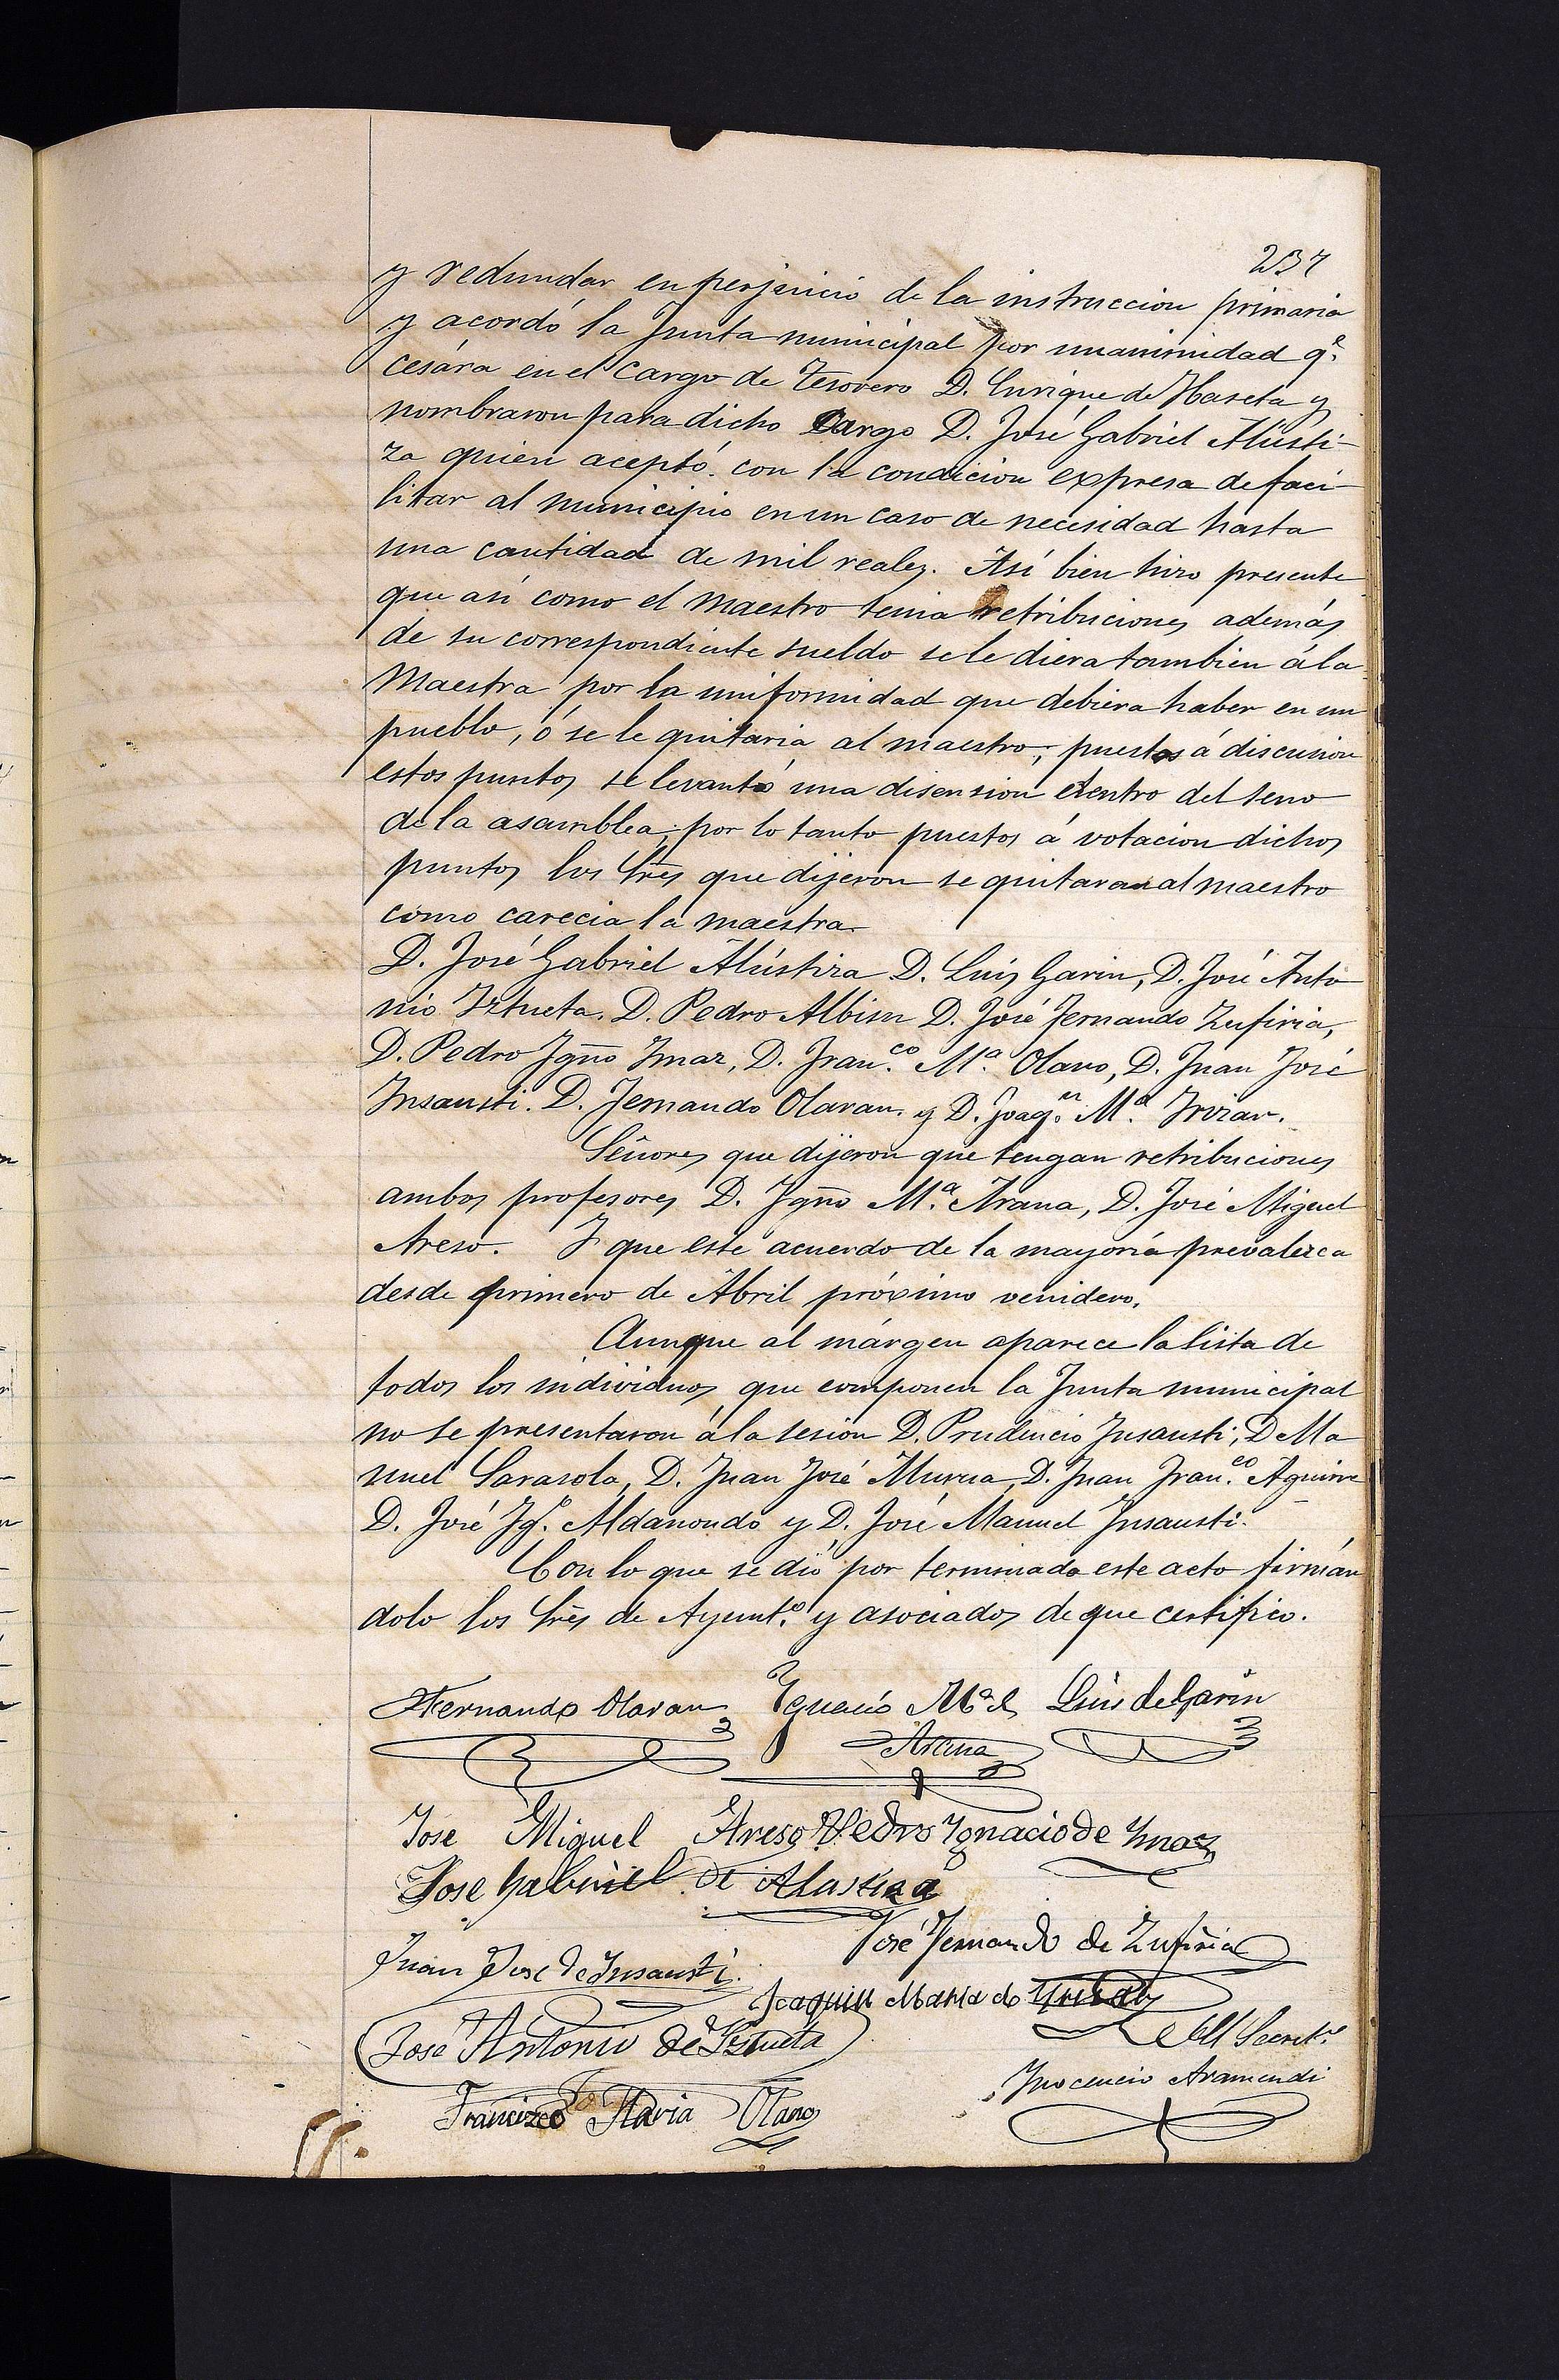 237
y redundar en perjuicio de la instruccion primaria
y acordó la Junta municipal por unanimidad q.e
cesára en el cargo de Tesorero D. Enrique de Ilaseta y
nombraron para dicho Cargo D. José Gabriel Alústi-
za quien aceptó con la condicion expresa de faci-
litar al municipio en un caso de necesidad hasta
una cantidad de mil reales. Así bien hizo presente
que así como el maestro tenia retribuciones además
de su correspondiente sueldo se le diera tambien á la
Maestra por la uniformidad que debiera haber en un
pueblo, ó se le quitaria al maestro; puestos á discusion
estos puntos se levantó una disension dentro del seno
de la asamblea, por lo tanto puestos á votacion dichos
puntos los Srẽs que dijeron se quitaran al maestro
como carecia la maestra.
D. José Gabriel Alústiza D. Luis Garin, D. José Anto
nio Iztueta. D. Pedro Albisu D. José Fernando Zufiria,
D. Pedro Ygnõ Imaz, D. Fran.co M.a Olano, D. Juan José
Insausti. D. Fernando Olaran. y D. Joaq.n M.a Irizar.
Señores que dijeron que tengan retribuciones
ambos profesores D. Ygnõ M.a Arana, D. José Miguel
Areso. Y que este acuerdo de la mayoría prevalezca
desde primero de Abril próximo venidero.
Aunque al márgen aparece la lista de
todos los individuos que componen la Junta municipal
no se presentaron á la sesion D. Prudencio Insausti, D Ma
nuel Sarasola, D. Juan José Murua, D. Juan Fran.co Aguirre
D. José Yg.o Aldanondo y D. José Manuel Insausti.
Con lo que se dió por terminado este acto firmán
dolo los Srẽs de Ayunt.o y asociados de que certifico.
Fernando Olaran Ygnacio M.a de Luis de Garin
Arana
Jose Miguel Areso Pedro Ygnacio de Ymaz
Jose Gabriel de Alustiza
José Fernando de Zufiria
Juan Jose de Insausti
Joaquin Maria de Yrizar
José Antonio de Iztueta
El Secret.o
Ynocencio Aramendi
Francizco Maria Olano